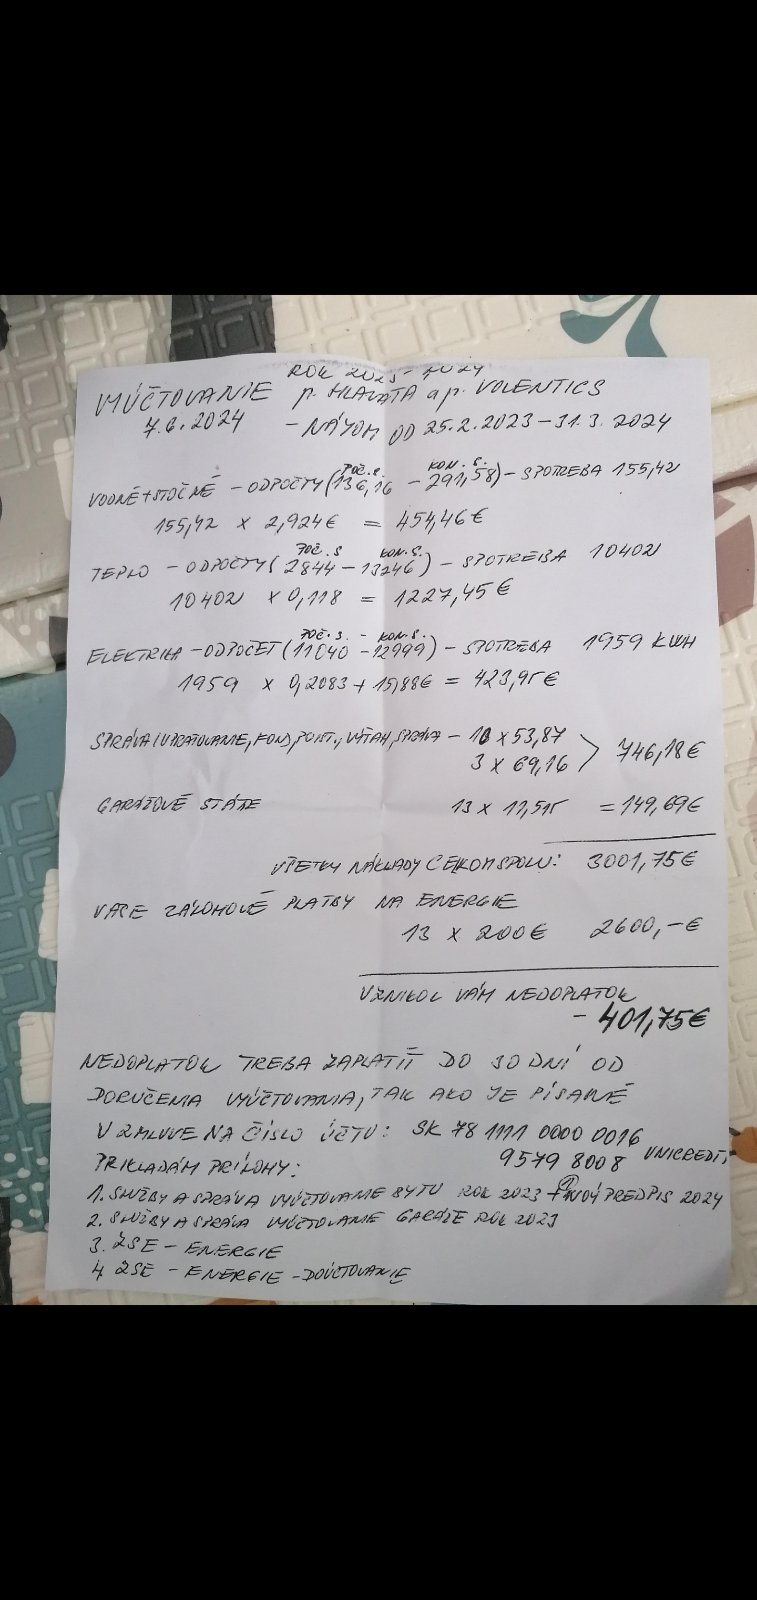 ROK 2023-2024
VYÚČTOVANIE p. HLAVATA a p. VOLENTICS
7.6.2024 - NÁJOM OD 25.2.2023-31.3.2024
POČ.S. KON.S.
VODNÉ+STOČNÉ - ODPOČTY (136,16 - 291,58) - SPOTREBA 155,42
155,42 x 2,924€ = 454,46€
POČ.S KON.S.
TEPLO - ODPOČTY (2844 - 13246) - SPOTREBA 10402
10402 x 0,118 = 1227,45€
POČ.S. - KON.S.
ELEKTRIKA - ODPOČET (11040 - 12999) - SPOTREBA 1959 KWH
1959 x 0,2083 + 15,88€ = 423,95€
SPRÁVA (UPRATOVANIE, FOND, POIST., VÝŤAH, SPRÁVA - 10 x 53,87
3 x 69,16 > 746,18€
GARÁŽOVÉ STÁTIE 13 x 11,515 = 149,69€
VŠETKY NÁKLADY CELKOM SPOLU: 3001,75€
VAŠE ZÁLOHOVÉ PLATBY NA ENERGIE
13 x 200€ 2600,-€
VZNIKOL VÁM NEDOPLATOK
- 401,75€
NEDOPLATOK TREBA ZAPLATIŤ DO 30 DNÍ OD
DORUČENIA VYÚČTOVANIA, TAK AKO JE PÍSANÉ
V ZMLUVE NA ČÍSLO ÚČTU: SK 78 1111 0000 0016
9579 8008 UNICREDIT
PRIKLADÁM PRÍLOHY:
1. SLUŽBY A SPRÁVA VYÚČTOVANIE BYTU ROK 2023 + NOVÝ PREDPIS 2024
2. SLUŽBY A SPRÁVA VYÚČTOVANIE GARÁŽE ROK 2023
3. ZSE - ENERGIE
4. ZSE - ENERGIE - DOÚČTOVANIE